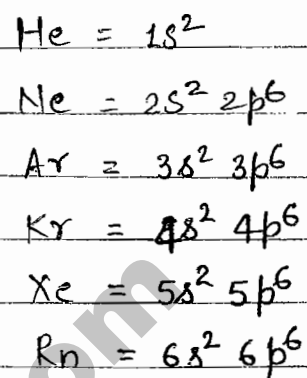 He = 1s²
Ne = 2s² 2p⁶
Ar = 3s² 3p⁶
Kr = 4s² 4p⁶
Xe = 5s² 5p⁶
Rn = 6s² 6p⁶
om